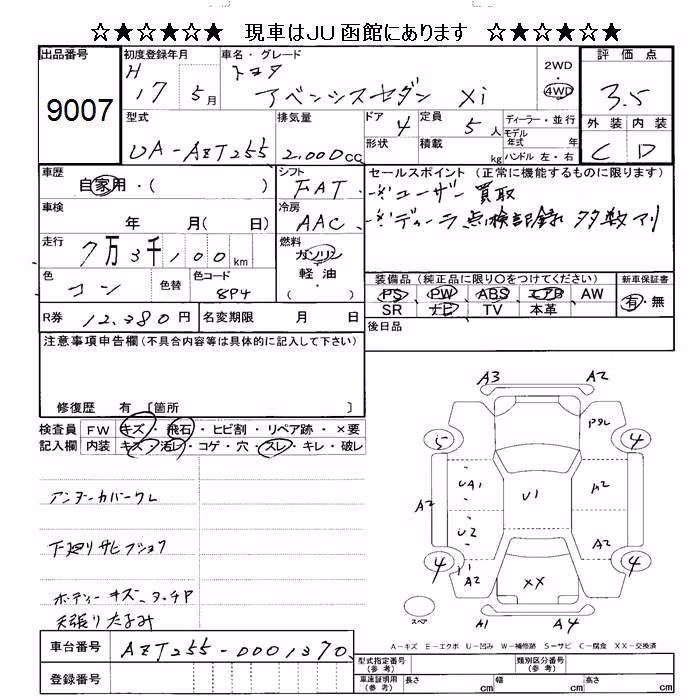 ☆★☆★☆★ 現車はJU函館にあります ☆★☆★☆★
出品番号
9007
初度登録年月
H 17 5月
車名・グレード
トヨタ
アベンシスセダン Xi
2WD
4WD
評価点
3.5
外装 内装
C D
型式
UA-AZT255
排気量
2.000cc
ドア 4
定員 5人
形状
積載 kg
ディーラー・並行
モデル年式 年
ハンドル 左・右
車歴
自家用・( )
シフト
FAT
セールスポイント (正常に機能するものに限ります)
※ユーザー買取
※ディーラー点検記録 多数アリ
車検
年 月( 日)
冷房
AAC
走行
7万3千100km
燃料
ガソリン
軽油
( )
色
コン
色替
色コード
8P4
装備品 (純正品に限り○をつけてください)
PS PW ABS エアB AW
SR ナビ TV 本革
新車保証書
有・無
R券 12.380円
名変期限 月 日
後日品
注意事項申告欄(不具合内容等は具体的に記入して下さい)
修復歴 有 〔箇所 〕
検査員
記入欄
FW キズ・飛石・ヒビ割・リペア跡・×要
内装 キズ・汚レ・コゲ・穴・スレ・キレ・破レ
アンダーカバーワレ
下廻りサビブショク
ボディーキズ、タッチP
天張りたるみ
A3 A2
5 4
A2 UA1 U2 U1 A2
P2L
4 4
A2 A2 XX
A1 A4
スペア
A-キズ E-エクボ U-凹み W-補修跡 S-サビ C-腐食 XX-交換済
車台番号
AZT255-0001370
登録番号
型式指定番号
(参考)
類別区分番号
(参考)
車庫証明用
(参考)
長さ cm
幅 cm
高さ cm